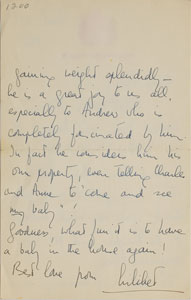 gaining weight splendidly –
he is a great joy to us all,
especially to Andrew who is
completely fascinated by him
In fact he considers him his
own property, even telling Charles
and Anne to "come and see
my baby"!
Goodness what fun it is to have
a baby in the house again!
Best love from Lilibet